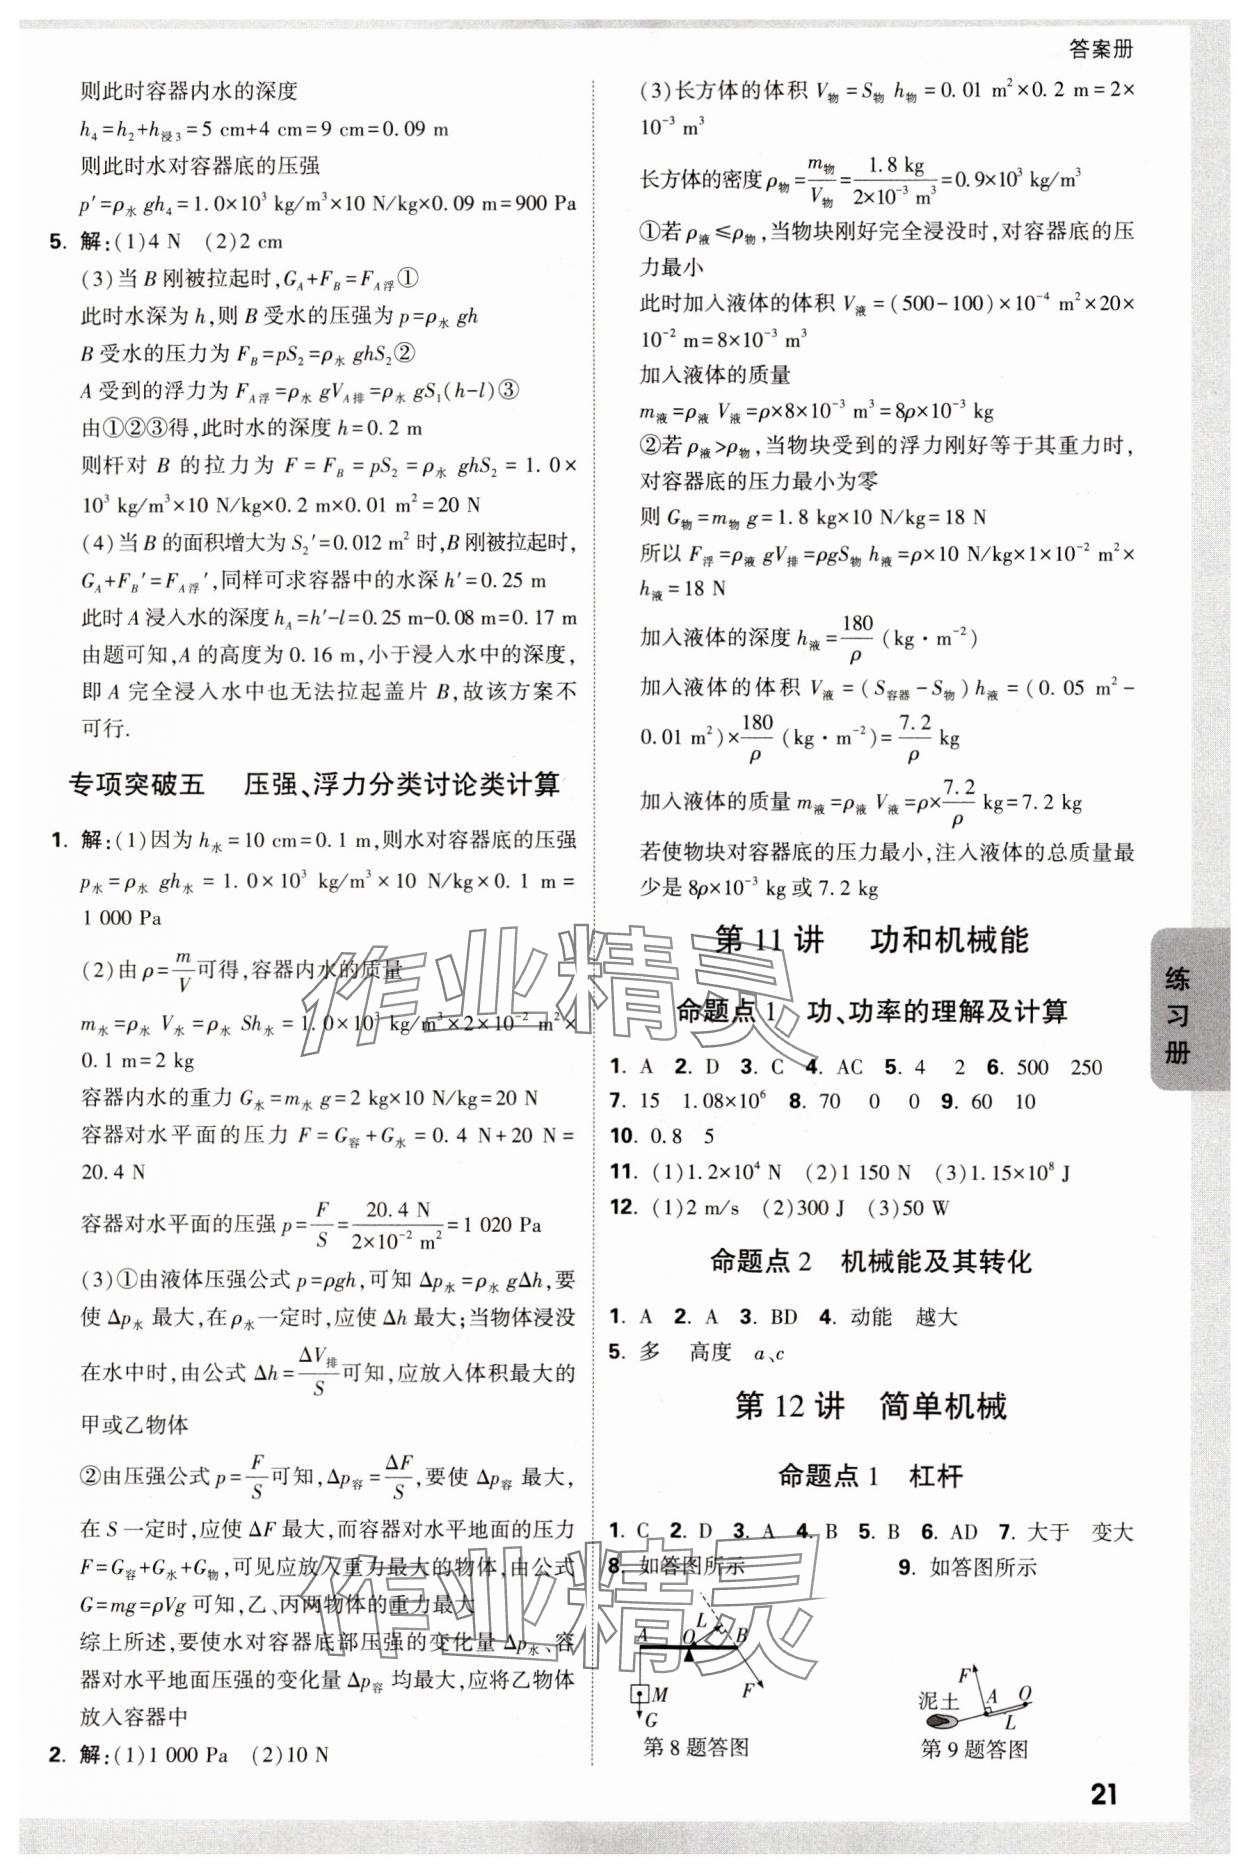 答案册
则此时容器内水的深度
h₄=h₂+h浸₃=5 cm+4 cm=9 cm=0.09 m
则此时水对容器底的压强
p′=ρ水 gh₄=1.0×10³ kg/m³×10 N/kg×0.09 m=900 Pa
5. 解:(1)4 N (2)2 cm
(3)当 B 刚被拉起时,G_A+F_B=F_A浮①
此时水深为 h,则 B 受水的压强为 p=ρ水 gh
B 受水的压力为 F_B=pS₂=ρ水 ghS₂②
A 受到的浮力为 F_A浮=ρ水 gV_A排=ρ水 gS₁(h-l)③
由①②③得,此时水的深度 h=0.2 m
则杆对 B 的拉力为 F=F_B=pS₂=ρ水 ghS₂=1.0×
10³ kg/m³×10 N/kg×0.2 m×0.01 m²=20 N
(4)当 B 的面积增大为 S₂′=0.012 m² 时,B 刚被拉起时,
G_A+F_B′=F_A浮′,同样可求容器中的水深 h′=0.25 m
此时 A 浸入水的深度 h_A=h′-l=0.25 m-0.08 m=0.17 m
由题可知,A 的高度为 0.16 m,小于浸入水中的深度,
即 A 完全浸入水中也无法拉起盖片 B,故该方案不
可行.
专项突破五 压强、浮力分类讨论类计算
1. 解:(1)因为 h水=10 cm=0.1 m,则水对容器底的压强
p水=ρ水 gh水=1.0×10³ kg/m³×10 N/kg×0.1 m=
1 000 Pa
(2)由 ρ=m/V可得,容器内水的质量
m水=ρ水 V水=ρ水 Sh水=1.0×10³ kg/m³×2×10⁻² m²×
0.1 m=2 kg
容器内水的重力 G水=m水 g=2 kg×10 N/kg=20 N
容器对水平面的压力 F=G容+G水=0.4 N+20 N=
20.4 N
容器对水平面的压强 p=F/S=20.4 N/(2×10⁻² m²)=1 020 Pa
(3)①由液体压强公式 p=ρgh,可知 Δp水=ρ水 gΔh,要
使 Δp水 最大,在 ρ水一定时,应使 Δh 最大;当物体浸没
在水中时,由公式 Δh=ΔV排/S可知,应放入体积最大的
甲或乙物体
②由压强公式 p=F/S可知,Δp容=ΔF/S,要使 Δp容 最大,
在 S 一定时,应使 ΔF 最大,而容器对水平地面的压力
F=G容+G水+G物,可见应放入重力最大的物体,由公式
G=mg=ρVg 可知,乙、丙两物体的重力最大
综上所述,要使水对容器底部压强的变化量 Δp水、容
器对水平地面压强的变化量 Δp容 均最大,应将乙物体
放入容器中
2. 解:(1)1 000 Pa (2)10 N
(3)长方体的体积 V物=S物 h物=0.01 m²×0.2 m=2×
10⁻³ m³
长方体的密度 ρ物=m物/V物=1.8 kg/(2×10⁻³ m³)=0.9×10³ kg/m³
①若 ρ液≤ρ物,当物块刚好完全浸没时,对容器底的压
力最小
此时加入液体的体积 V液=(500-100)×10⁻⁴ m²×20×
10⁻² m=8×10⁻³ m³
加入液体的质量
m液=ρ液 V液=ρ×8×10⁻³ m³=8ρ×10⁻³ kg
②若 ρ液>ρ物,当物块受到的浮力刚好等于其重力时,
对容器底的压力最小为零
则 G物=m物 g=1.8 kg×10 N/kg=18 N
所以 F浮=ρ液 gV排=ρgS物 h液=ρ×10 N/kg×1×10⁻² m²×
h液=18 N
加入液体的深度 h液=180/ρ(kg·m⁻²)
加入液体的体积 V液=(S容器-S物)h液=(0.05 m²-
0.01 m²)×180/ρ(kg·m⁻²)=7.2/ρ kg
加入液体的质量 m液=ρ液 V液=ρ×7.2/ρ kg=7.2 kg
若使物块对容器底的压力最小,注入液体的总质量最
少是 8ρ×10⁻³ kg 或 7.2 kg
第 11 讲 功和机械能
命题点 1 功、功率的理解及计算
1. A 2. D 3. C 4. AC 5. 4 2 6. 500 250
7. 15 1.08×10⁶ 8. 70 0 0 9. 60 10
10. 0.8 5
11. (1)1.2×10⁴ N (2)1 150 N (3)1.15×10⁸ J
12. (1)2 m/s (2)300 J (3)50 W
命题点 2 机械能及其转化
1. A 2. A 3. BD 4. 动能 越大
5. 多 高度 a、c
第 12 讲 简单机械
命题点 1 杠杆
1. C 2. D 3. A 4. B 5. B 6. AD 7. 大于 变大
8. 如答图所示 9. 如答图所示
A O L B
M
G
F
第 8 题答图
泥土 F A O
L
第 9 题答图
练习册
作业精灵
作业精灵
21